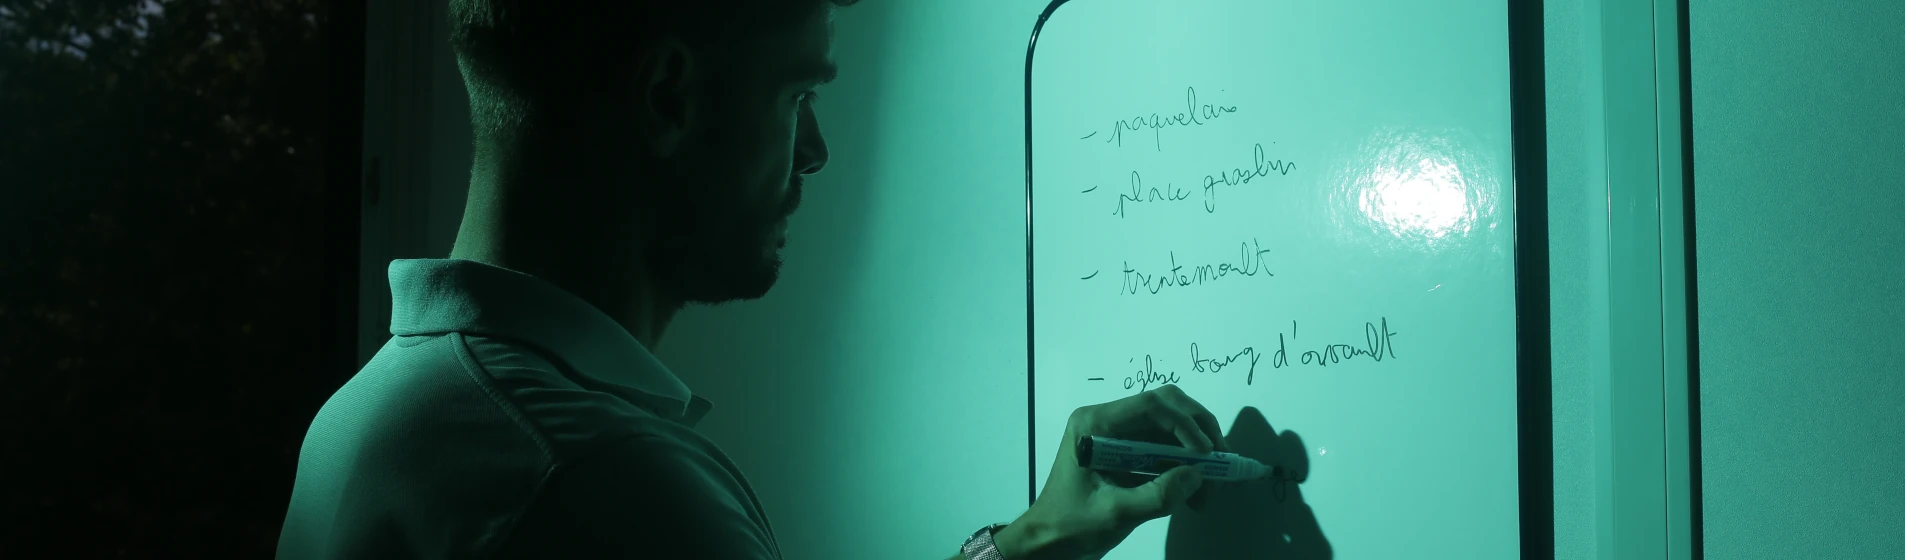 - paquelais
- place graslin
- trentemoult
- église bourg d'orvault